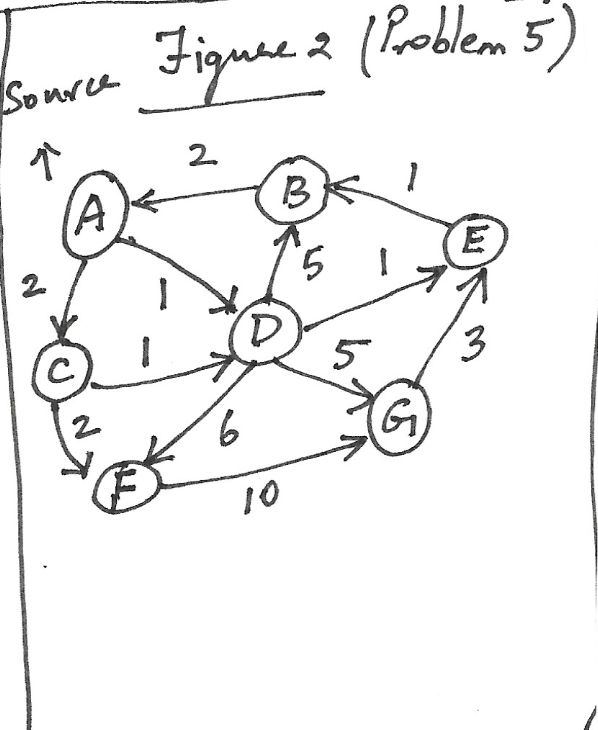 Figure 2 (Problem 5)
Source
2
1
A
B
E
5
1
2
1
D
1
5
3
C
2
6
G
F
10